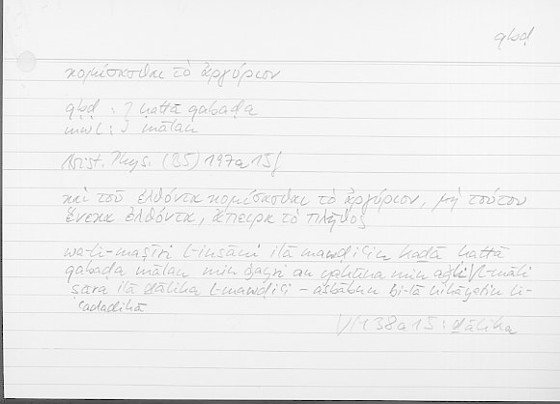 qbḍ
κομίσασθαι τὸ ἀργύριον
qbḍ : ḥattā qabaḍa
mwl : mālan
Arist. Phys. (B5) 197a 15f
καὶ τοῦ ἐλθόντα κομίσασθαι τὸ ἀργύριον, μὴ τούτου
ἕνεκα ἐλθόντα, ἄπειρα τὸ πλῆθος
wa-li-maṣīri l-insāni ilā mawḍiʿin ḥattā
qabaḍa mālan min ġayri an yakūna min aǧli l-māli
ṣāra ilā ḏālika l-mawḍiʿi – asbābun bi-lā nihāyatin li-
ʿadadihā
138a15 : ḏālika